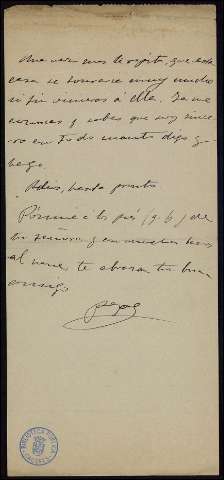 Una vez mas te repito, que esta
casa se honrará muy mucho
si tu vinieras á ella. Ya me
conoces y sabes que soy since
ro en todo cuanto digo y
hago.
Adios, hasta pronto
Ponme á los pies (q. b.) de
tu señora, y en muchos besos
al nene, te abraza tu buen
amigo
Pepe
BIBLIOTECA PUBLICA